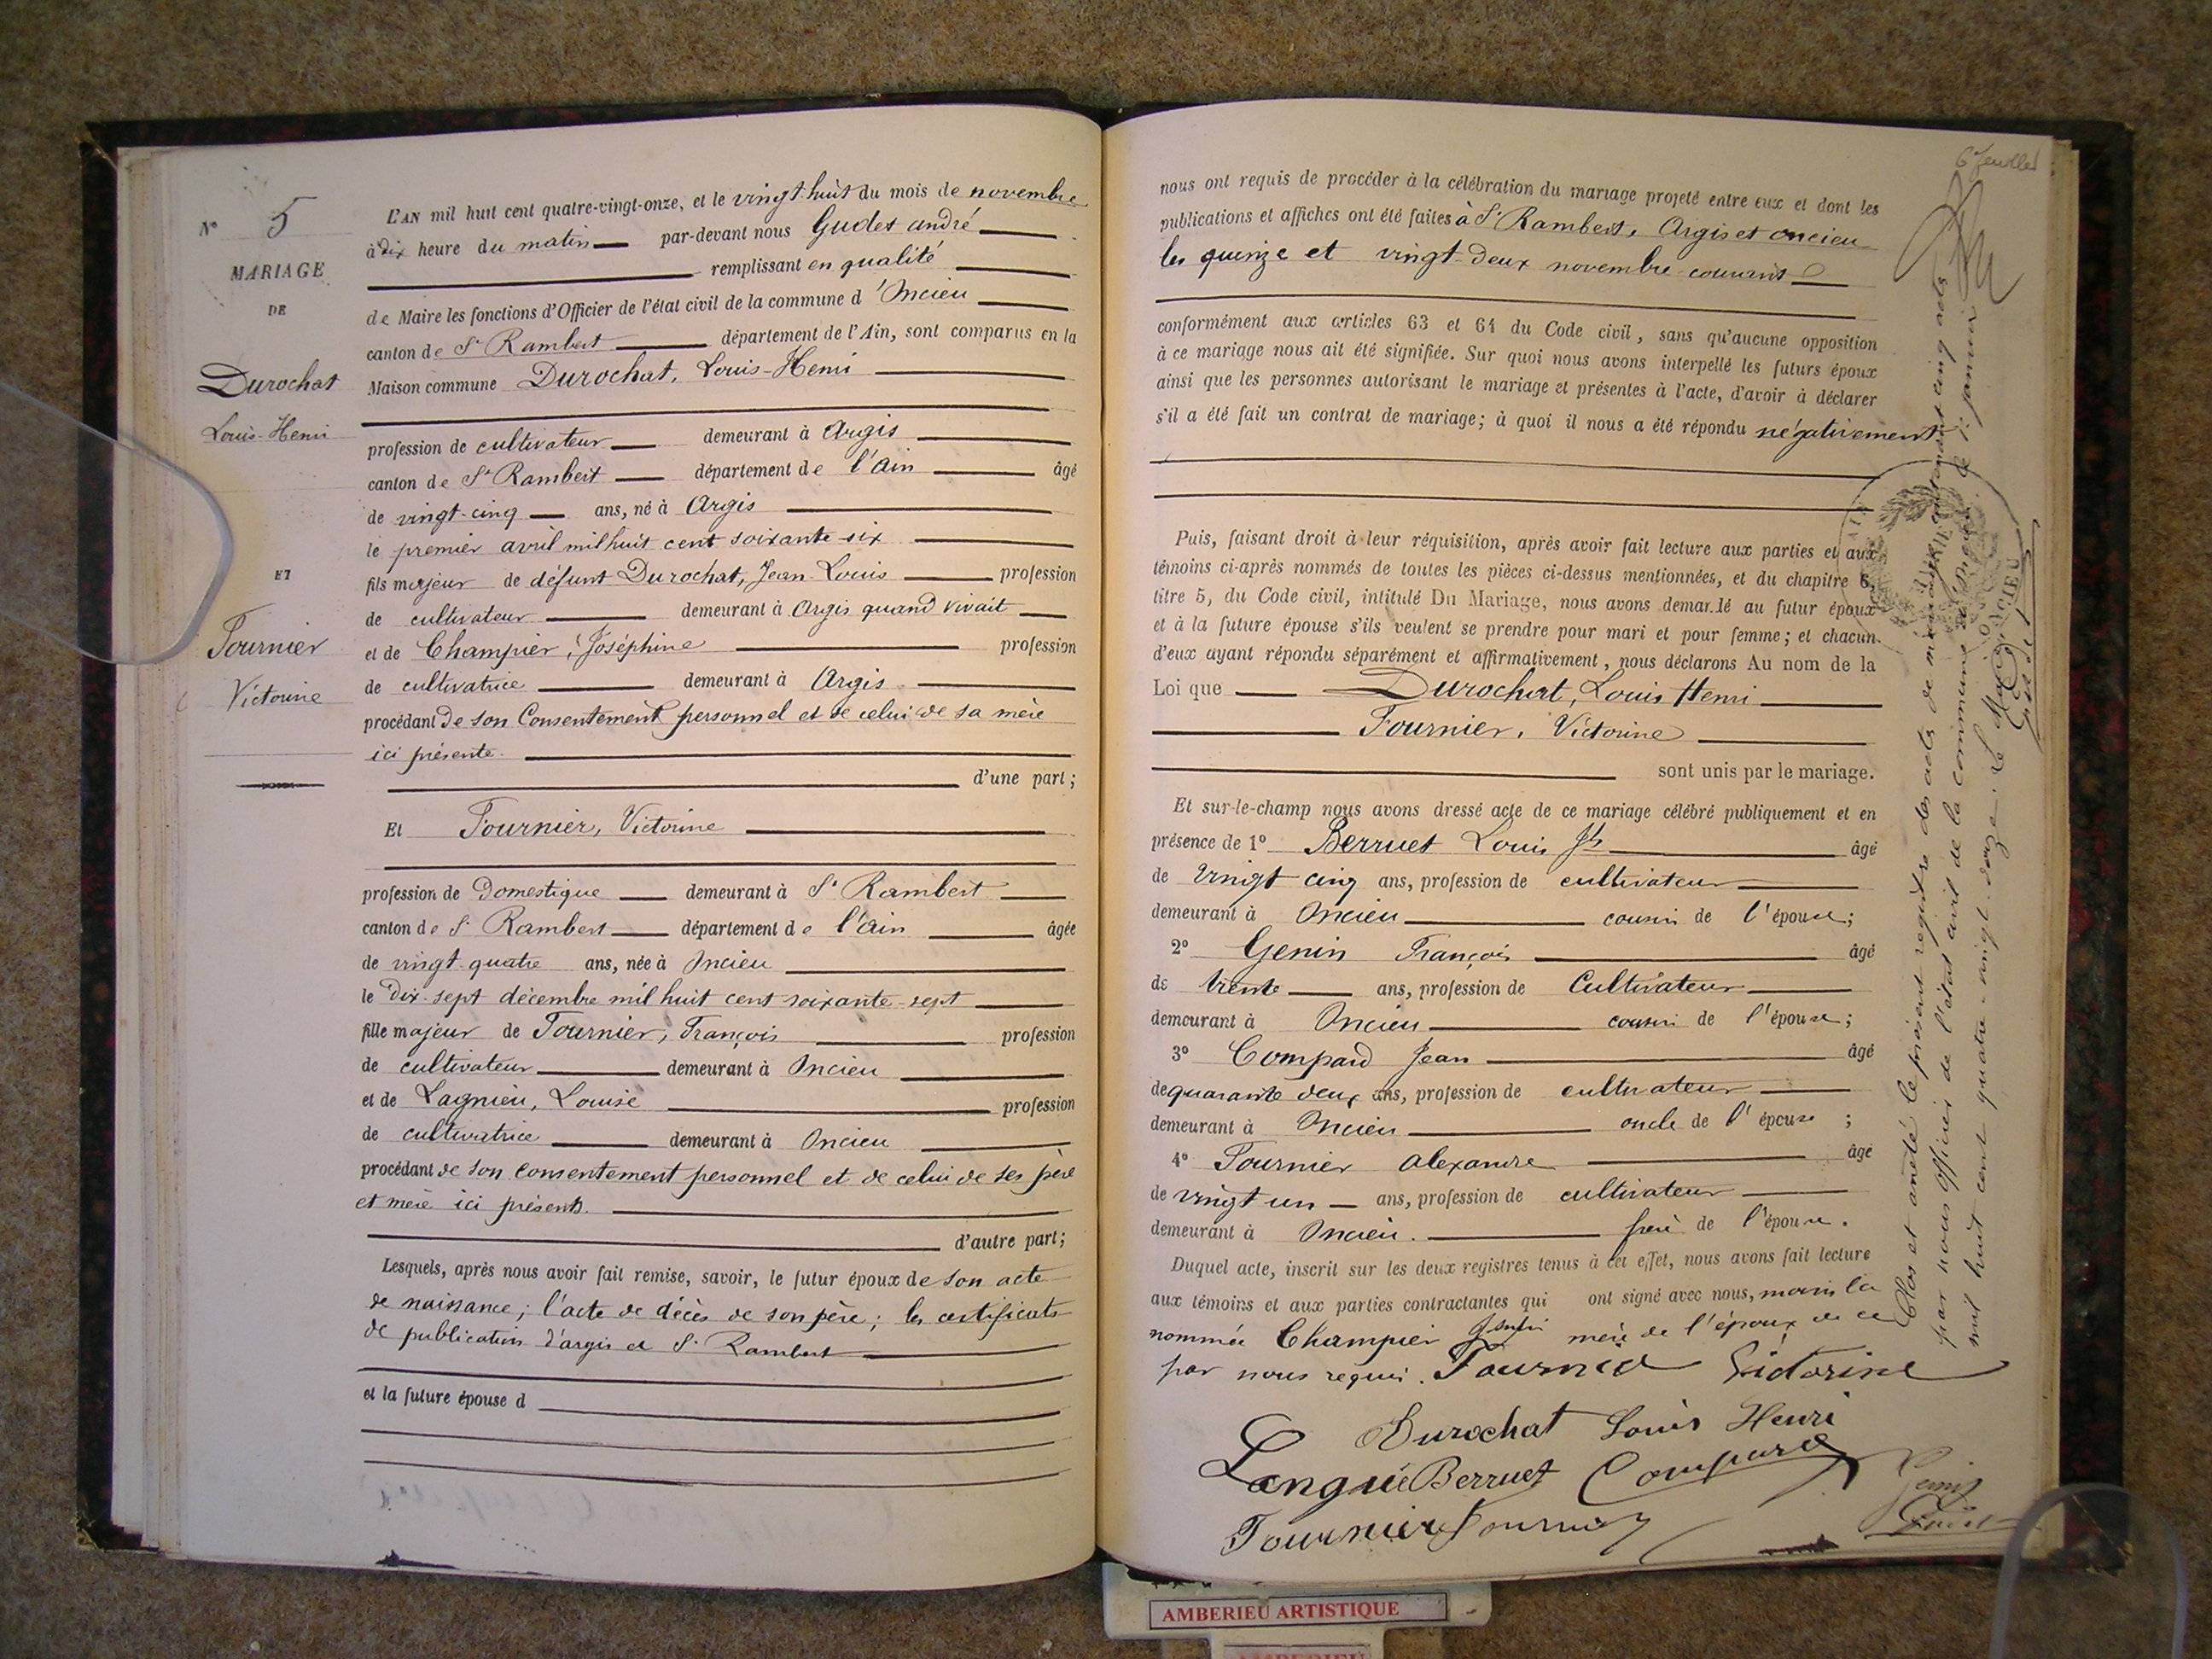 N° 5
MARIAGE
DE
Durochat
Louis-Henri
ET
Fournier
Victorine
L'AN mil huit cent quatre-vingt-onze, et le vingt-huit du mois de novembre
à dix heure du matin par-devant nous Gudet andré
remplissant en qualité
de Maire les fonctions d'Officier de l'état civil de la commune d'Oncieu
canton de St Rambert département de l'Ain, sont comparus en la
Maison commune Durochat, Louis-Henri
profession de cultivateur demeurant à Argis
canton de St Rambert département de l'Ain âgé
de vingt-cinq ans, né à Argis
le premier avril mil huit cent soixante-six
fils majeur de défunt Durochat, Jean-Louis profession
de cultivateur demeurant à Argis quand vivait
et de Champier, Joséphine profession
de cultivatrice demeurant à Argis
procédant de son Consentement personnel et de celui de sa mère
ici présente.
d'une part;
Et Fournier, Victorine
profession de Domestique demeurant à St Rambert
canton de St Rambert département de l'Ain âgée
de vingt-quatre ans, née à Oncieu
le Dix-sept décembre mil huit cent soixante-sept
fille majeur de Fournier, François profession
de cultivateur demeurant à Oncieu
et de Lagnieu, Louise profession
de cultivatrice demeurant à Oncieu
procédant de son consentement personnel et de celui de ses père
et mère ici présents.
d'autre part;
Lesquels, après nous avoir fait remise, savoir, le futur époux de son acte
de naissance; l'acte de décès de son père; les certificats
de publication d'argis et St Rambert
et la future épouse d
6e feuillet
nous ont requis de procéder à la célébration du mariage projeté entre eux et dont les
publications et affiches ont été faites à St Rambert, Argis et oncieu
les quinze et vingt-deux novembre courants
conformément aux articles 63 et 64 du Code civil, sans qu'aucune opposition
à ce mariage nous ait été signifiée. Sur quoi nous avons interpellé les futurs époux
ainsi que les personnes autorisant le mariage et présentes à l'acte, d'avoir à déclarer
s'il a été fait un contrat de mariage; à quoi il nous a été répondu négativement
Puis, faisant droit à leur réquisition, après avoir fait lecture aux parties et aux
témoins ci-après nommés de toutes les pièces ci-dessus mentionnées, et du chapitre 6,
titre 5, du Code civil, intitulé Du Mariage, nous avons demandé au futur époux
et à la future épouse s'ils veulent se prendre pour mari et pour femme; et chacun
d'eux ayant répondu séparément et affirmativement, nous déclarons Au nom de la
Loi que Durochat, Louis Henri
Fournier, Victorine
sont unis par le mariage.
Et sur-le-champ nous avons dressé acte de ce mariage célébré publiquement et en
présence de 1° Berruet Louis fs âgé
de vingt cinq ans, profession de cultivateur
demeurant à Oncieu cousin de l'épouse;
2° Genin François âgé
de trente ans, profession de Cultivateur
demeurant à Oncieu cousin de l'épouse;
3° Compard Jean âgé
de quarante deux ans, profession de cultivateur
demeurant à Oncieu oncle de l'épouse;
4° Fournier alexandre âgé
de vingt un ans, profession de cultivateur
demeurant à Oncieu. frère de l'épouse.
Duquel acte, inscrit sur les deux registres tenus à cet effet, nous avons fait lecture
aux témoins et aux parties contractantes qui ont signé avec nous, moins la
nommée Champier mère de l'époux de ce
par nous requis. Fournier Victorine
Durochat Louis Henri
Berruet Compard
Fournier Fournier
Genin
Gudet
Clos et arrêté le présent registre des actes de mariage contenant cinq actes
par nous officier de l'état civil de la commune d'Oncieu le 1er janvier
mil huit cent quatre-vingt-douze. Le Maire
Gudet
AIN
ONCIEU
AMBERIEU ARTISTIQUE
AMBERIEU